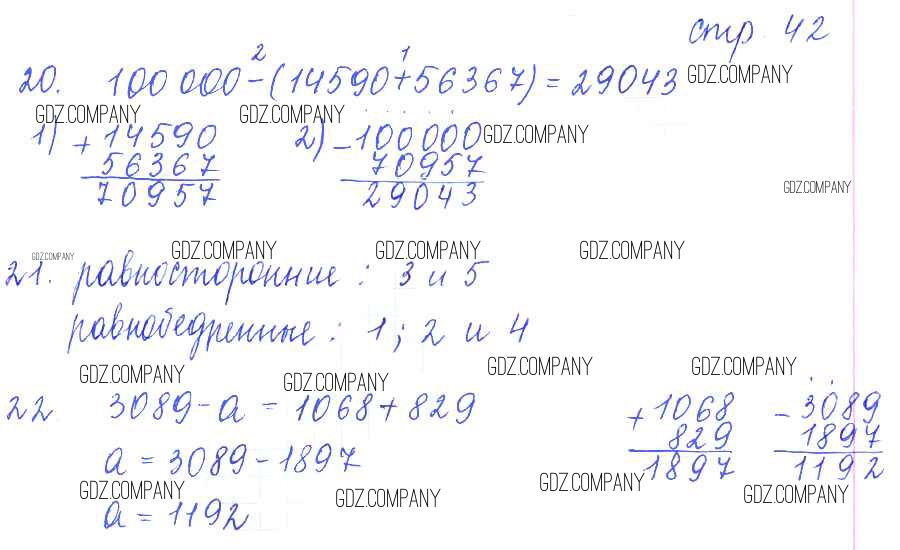 стр. 42
20. 100 000 - (14590 + 56367) = 29043
2 1
GDZ.COMPANY
GDZ.COMPANY GDZ.COMPANY
1) + 14590 2) - 100000 GDZ.COMPANY
56367 70957
70957 29043
GDZ.COMPANY
GDZ.COMPANY GDZ.COMPANY GDZ.COMPANY GDZ.COMPANY
21. равносторонние: 3 и 5
равнобедренные: 1; 2 и 4
GDZ.COMPANY GDZ.COMPANY GDZ.COMPANY GDZ.COMPANY
22. 3089 - а = 1068 + 829 + 1068 - 3089
829 1897
а = 3089 - 1897 1897 1192
GDZ.COMPANY GDZ.COMPANY GDZ.COMPANY GDZ.COMPANY
а = 1192